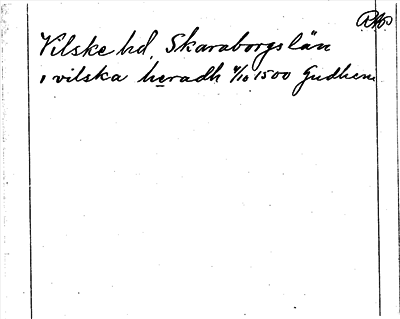 Vilske hd, Skaraborgs län
i vilska heradh 4/10 1500 Gudhem